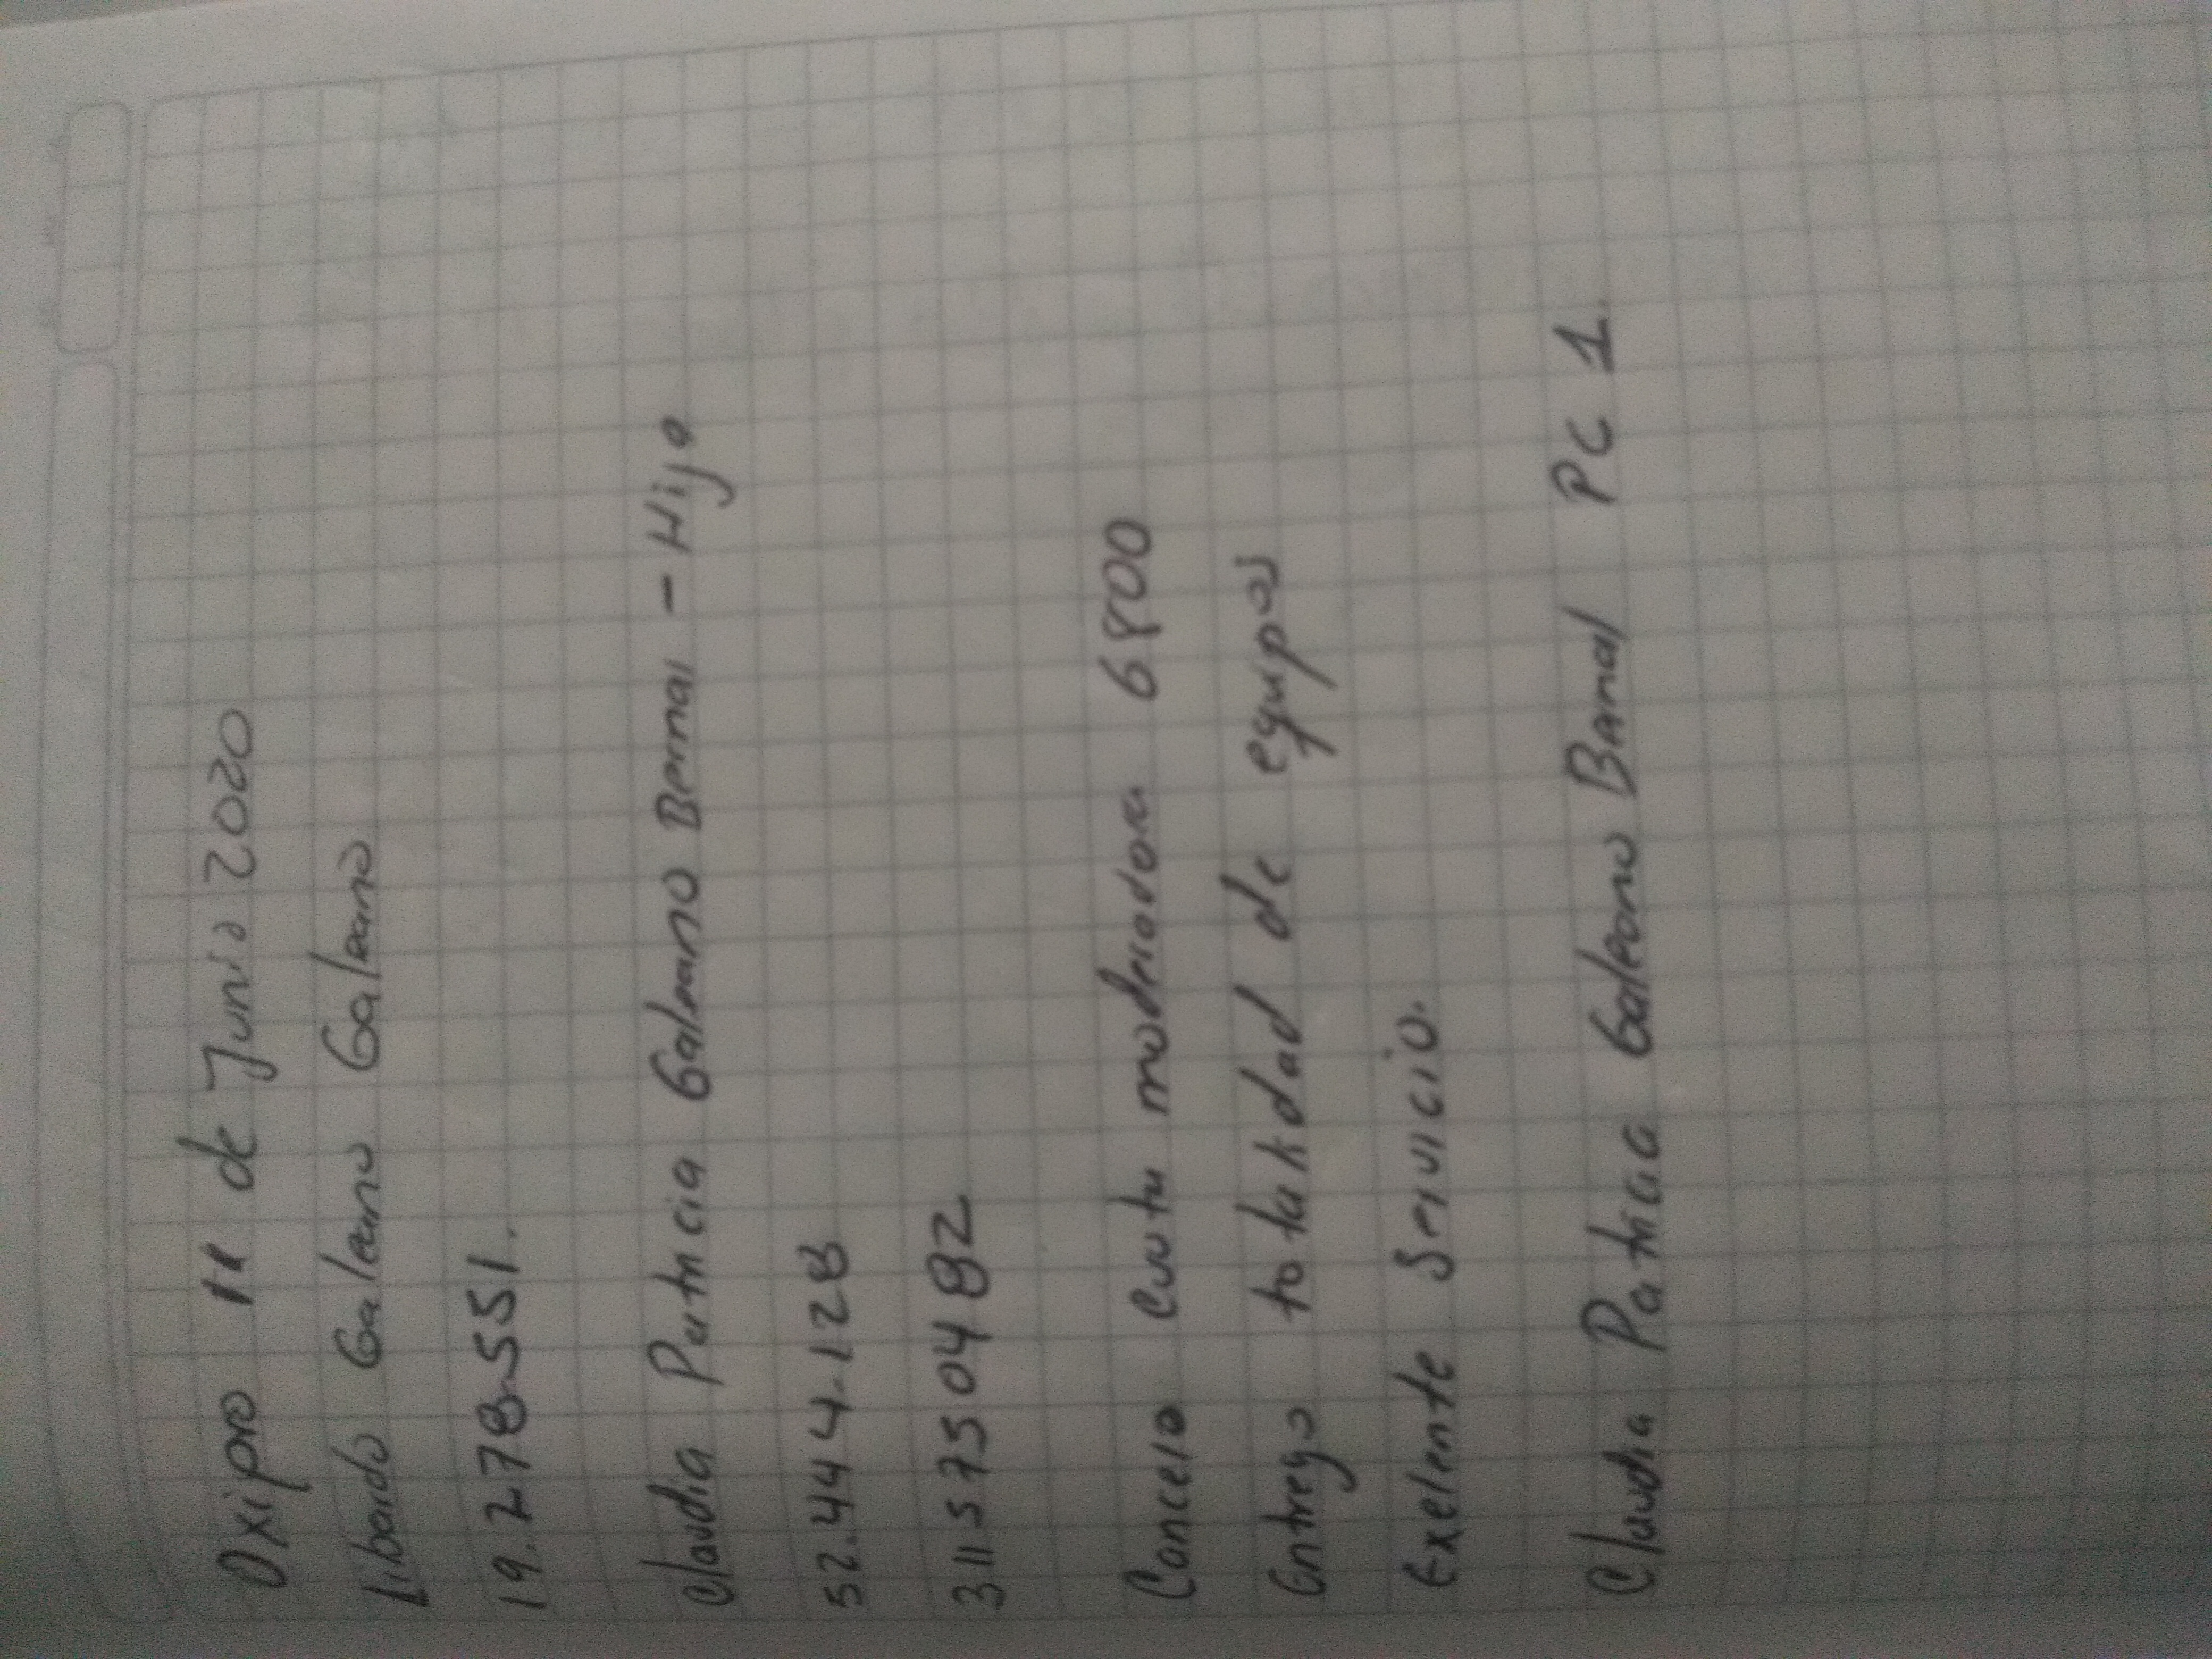 Oxipro 11 de Junio 2020
Libardo Galeano Galeano
19.278.551.
Claudia Patricia Galeano Bernal - Hija
52.444.128
311 575 04 82
Cancelo cuota moderadora 6800
Entrego totalidad de equipos
Exelente servicio.
Claudia Patricia Galeano Bernal PC 1.